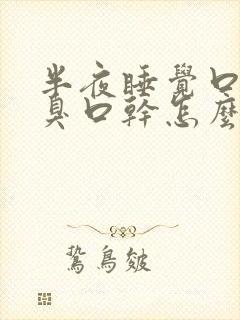 半夜睡覺口
臭口幹怎麼
鷙鳥皴